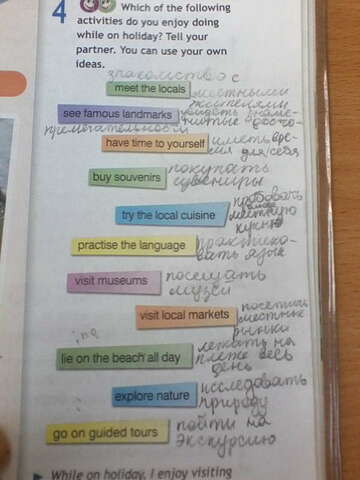 4 Which of the following
activities do you enjoy doing
while on holiday? Tell your
partner. You can use your own
ideas.
знакомство с
meet the locals местными
жителями
see famous landmarks увидеть знаме-
нитые досто-
примечательности
have time to yourself иметь вре-
мя для себя
buy souvenirs покупать
сувениры
try the local cuisine пробовать
местную
кухню
practise the language практико-
вать язык
visit museums посещать
музеи
visit local markets посетить
местные
рынки
ing
lie on the beach all day лежать на
пляже весь
день
explore nature исследовать
природу
go on guided tours пойти на
экскурсию
While on holiday, I enjoy visiting